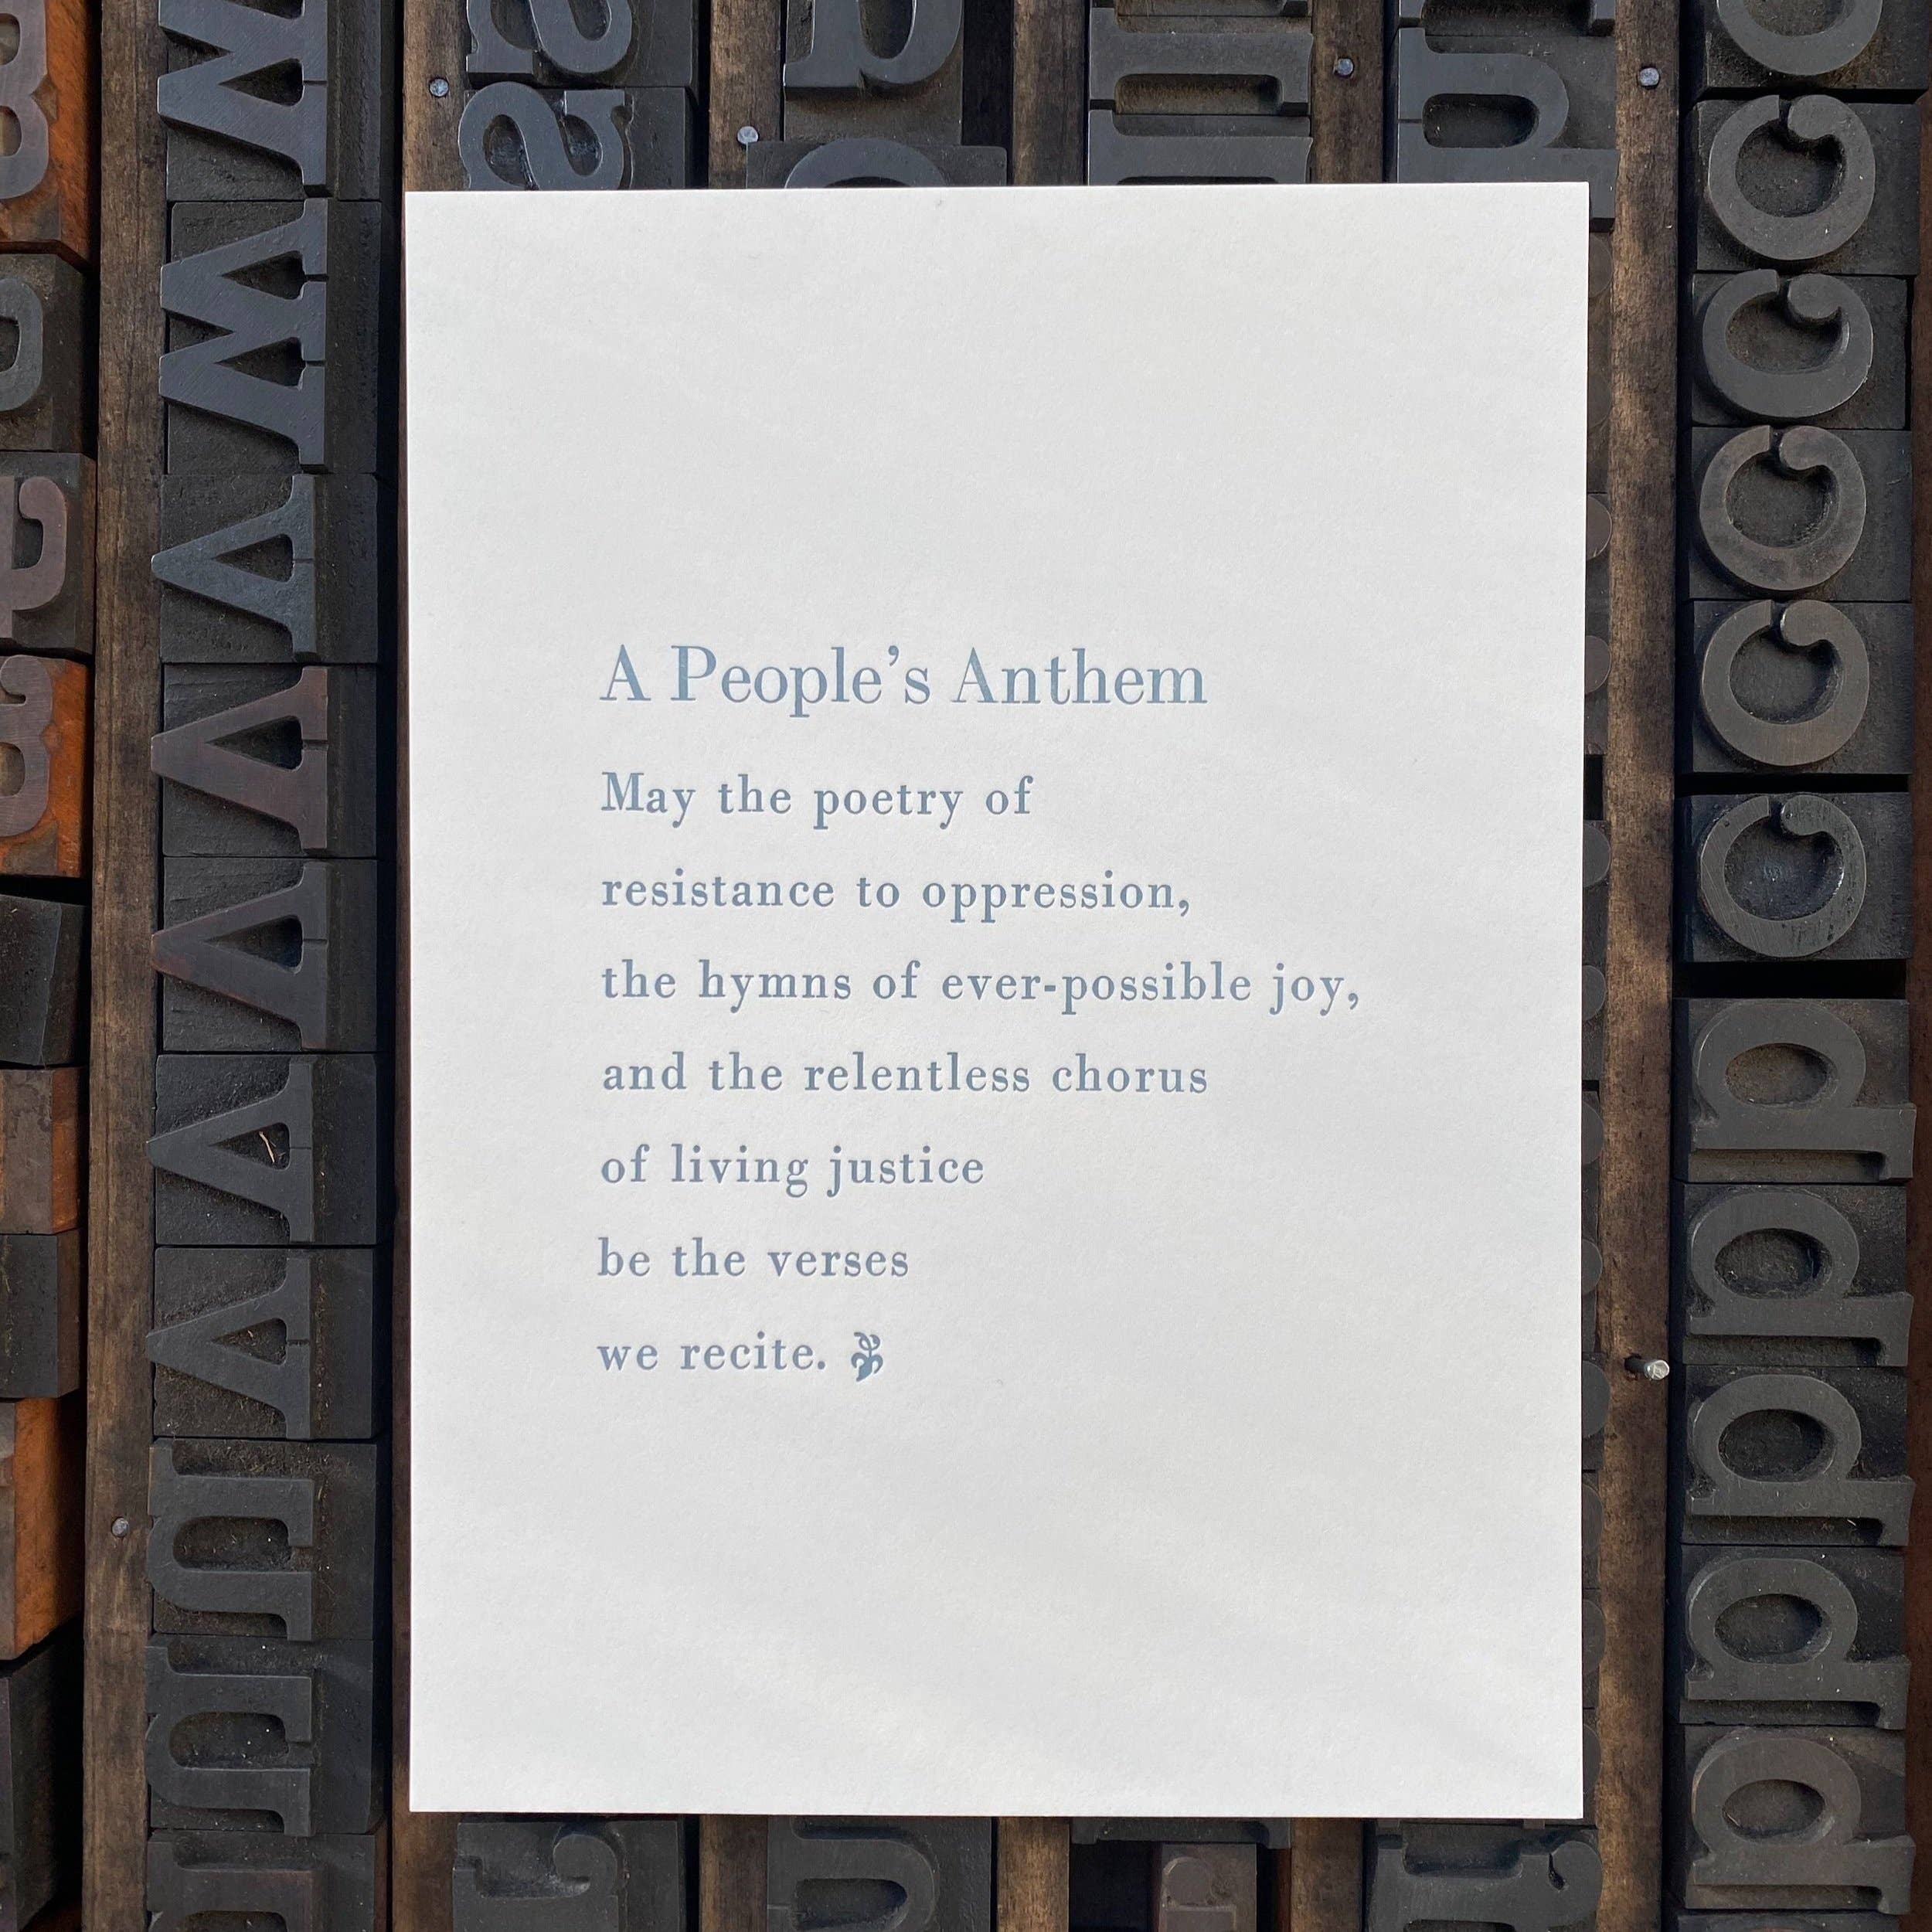 A People’s Anthem
May the poetry of
resistance to oppression,
the hymns of ever-possible joy,
and the relentless chorus
of living justice
be the verses
we recite.